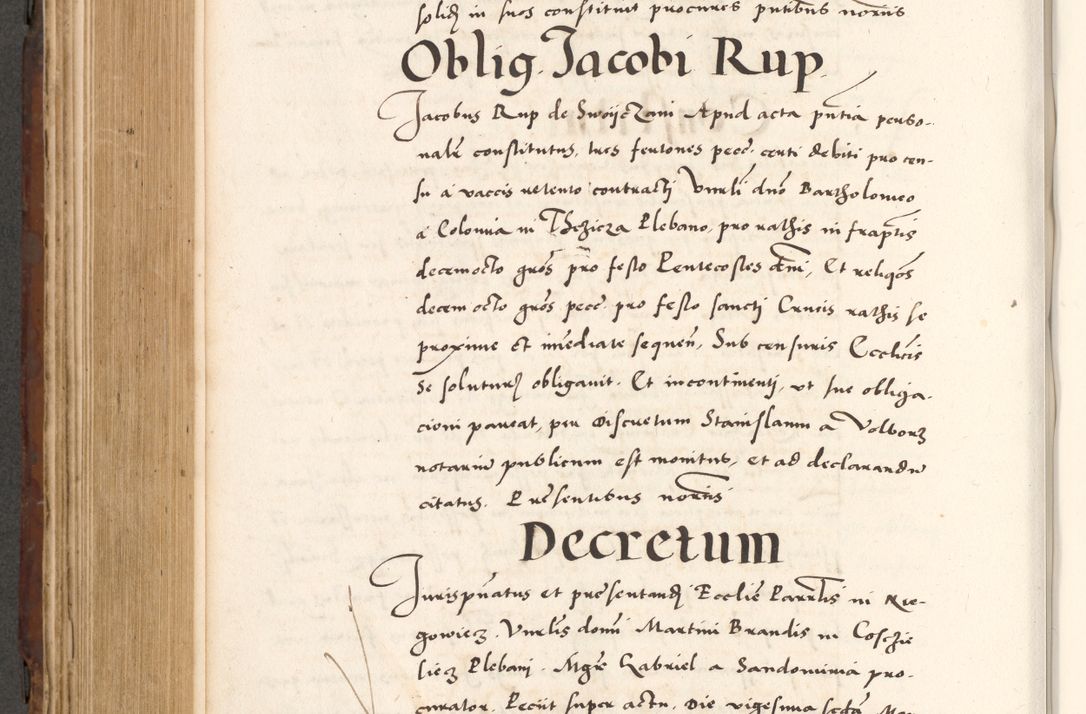 solid in suos constituit procures pntibus notriis
Oblig. Jacobi Rup
Jacobus Rup de Swoijczani Apud acta pntia perso-
nalr constitutus, tres fertones pecc. certi debiti pro cen-
su a vaccis retento contracti Vnrli dno Bartholomeo
a Colonia in Thczicza Plebano, pro rathis in fraptis
decemocto gros pro festo Pentecostes Et reliqos
decem octo gros pecc. pro festo sancti Crucis rathis se
proxime et imediate sequen, Sub censuris Ecclicis
se soluturq obligauit. Et incontinenti, vt sue obliga-
cioni pareat, per discretum Stanislaum a Volborz
notariu publicum est monitus, et ad declarandu
citatus. Presentibus notriis
Decretum
Jurispnatus et presentandi Ecclie Parrlis in Rze-
gowicz. Vnrlis domi Martini Brandis in Coschie
licz Plebani. Mgr Gabriel a Sandomiria pro-
curator. Fecit super actu. Die vigesima scda